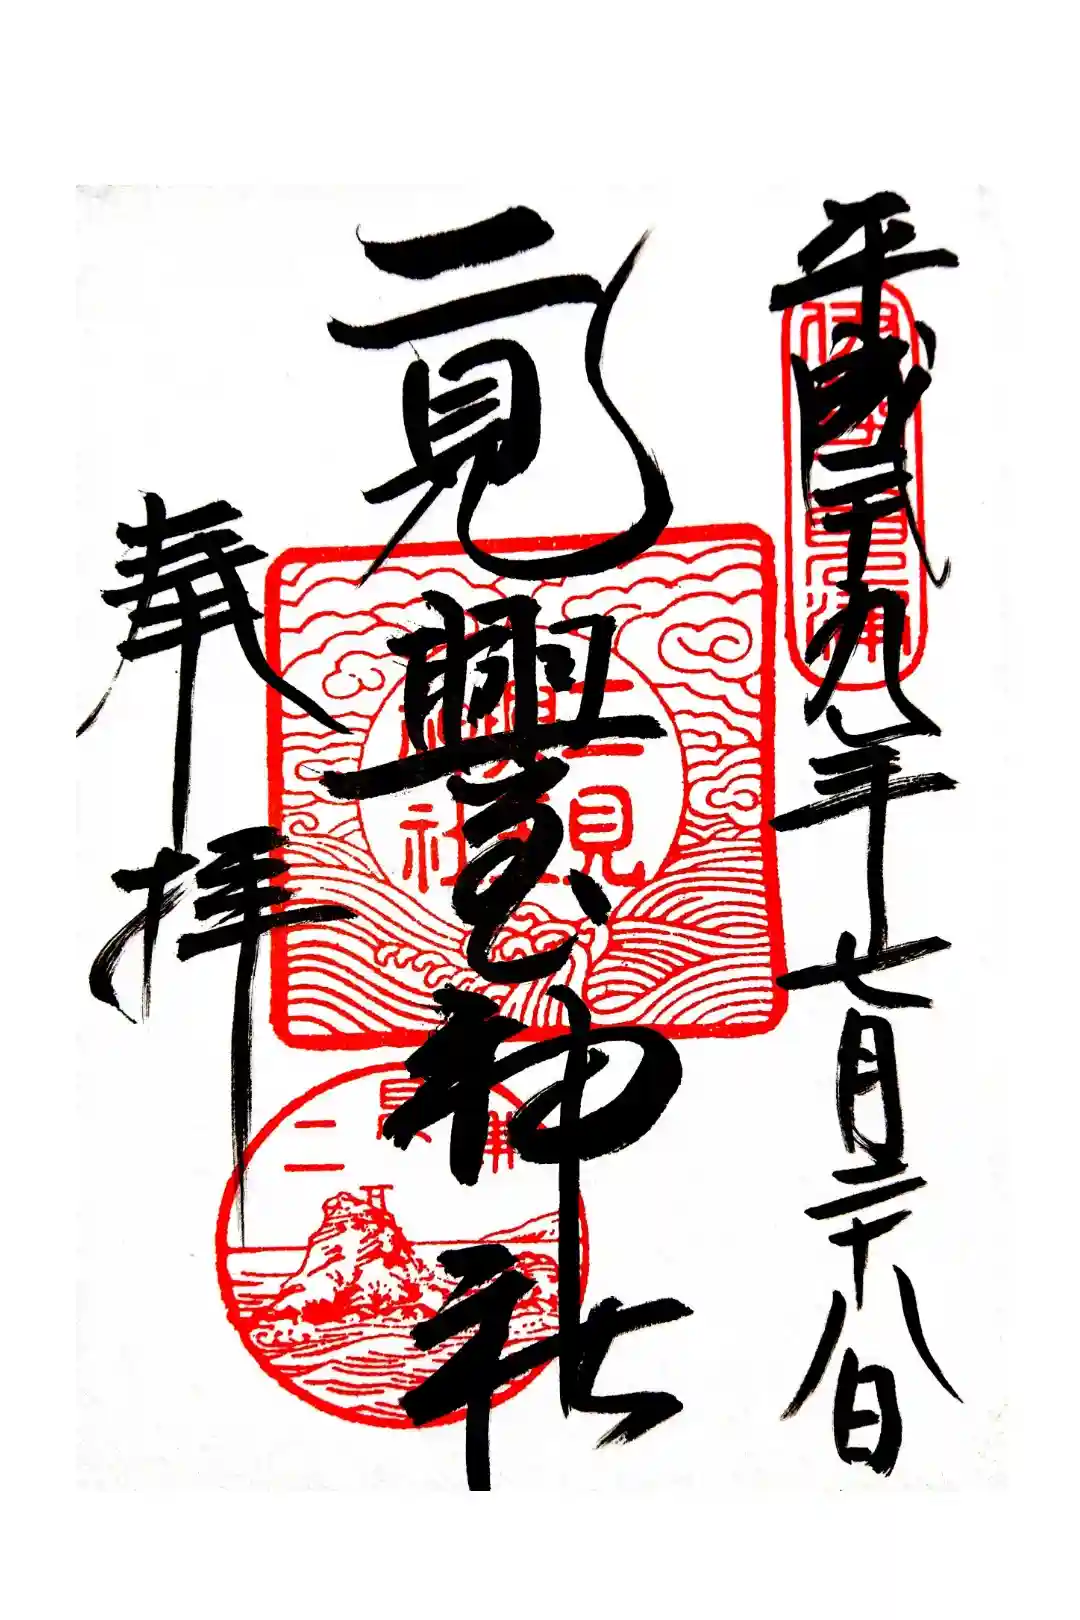 平成二十九年七月二十八日
二見興玉神社
奉拝
二見興玉神社
二見浦